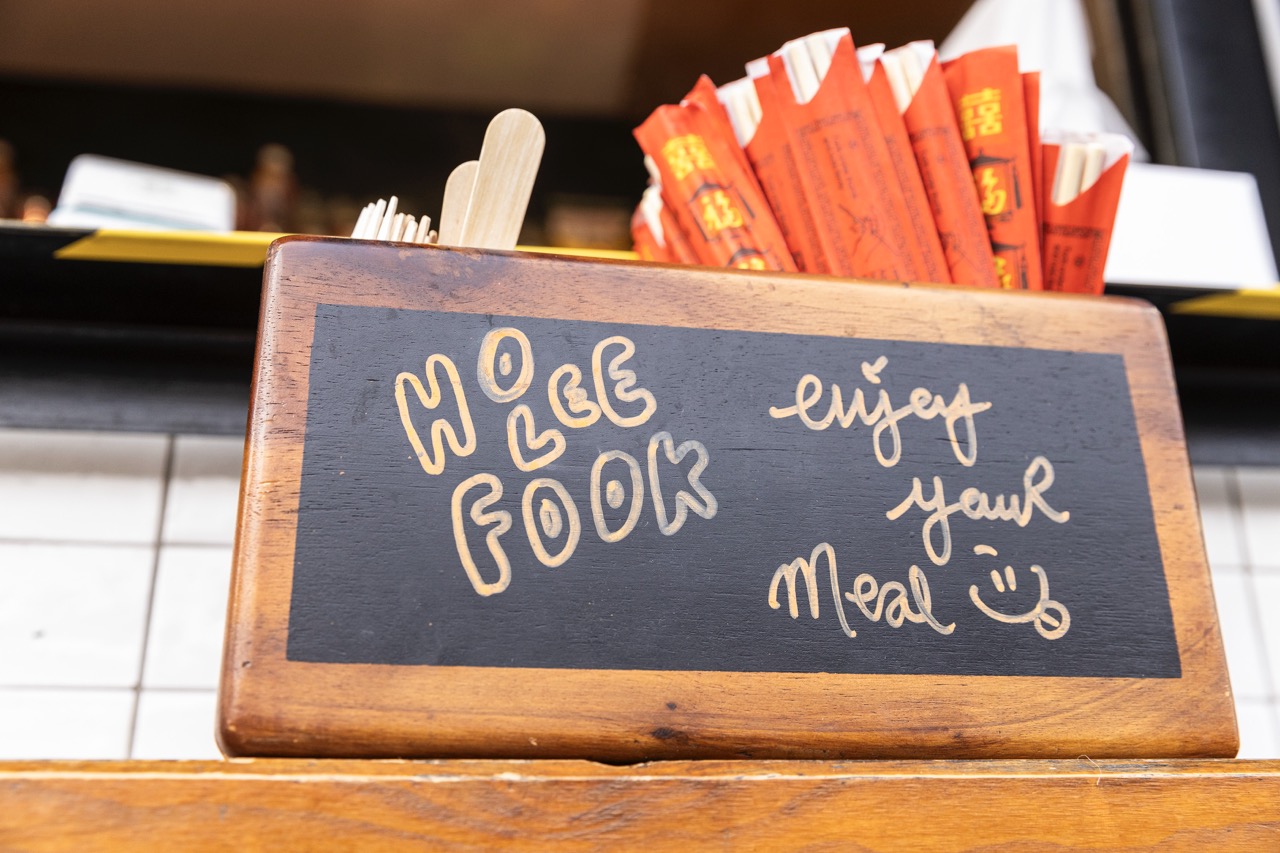 囍
福
囍
福
HO
LEE
FOOK
enjoy
youR
Meal